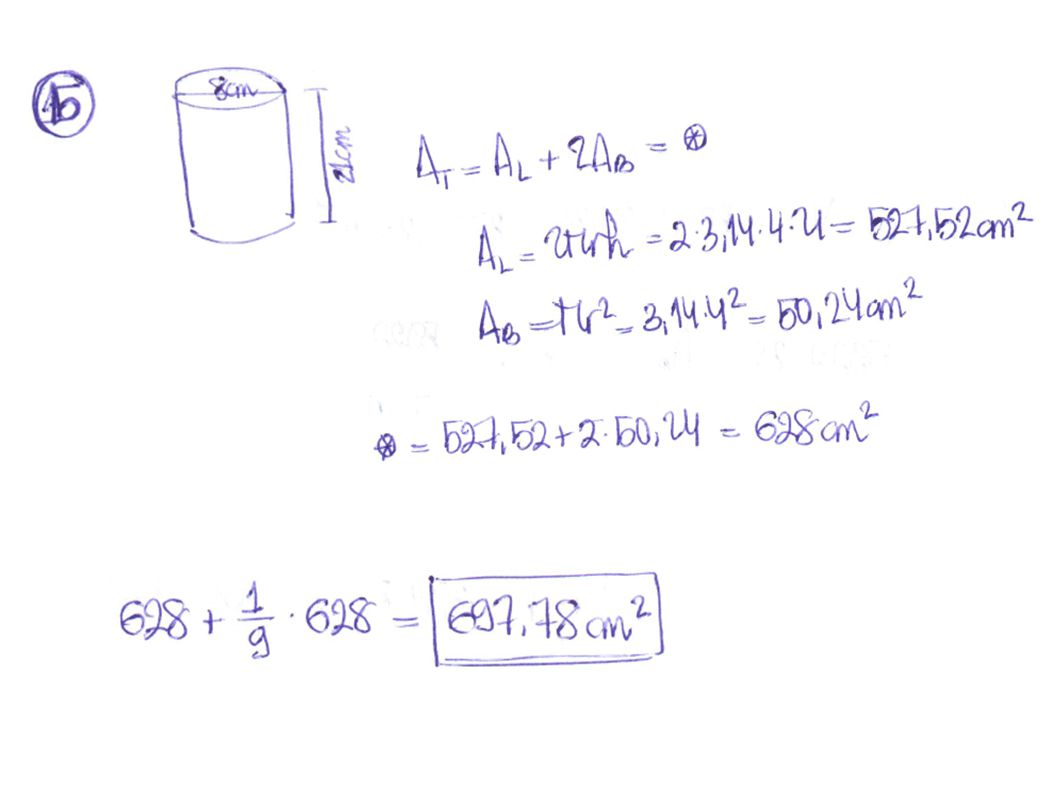 15
8cm
21cm
A_T = A_L + 2A_B = ⊛
A_L = 2πrh = 2·3,14·4·21 = 527,52cm²
A_B = πr² = 3,14·4² = 50,24cm²
⊛ = 527,52+2·50,24 = 628cm²
628 + 1/9 · 628 = 697,78cm²